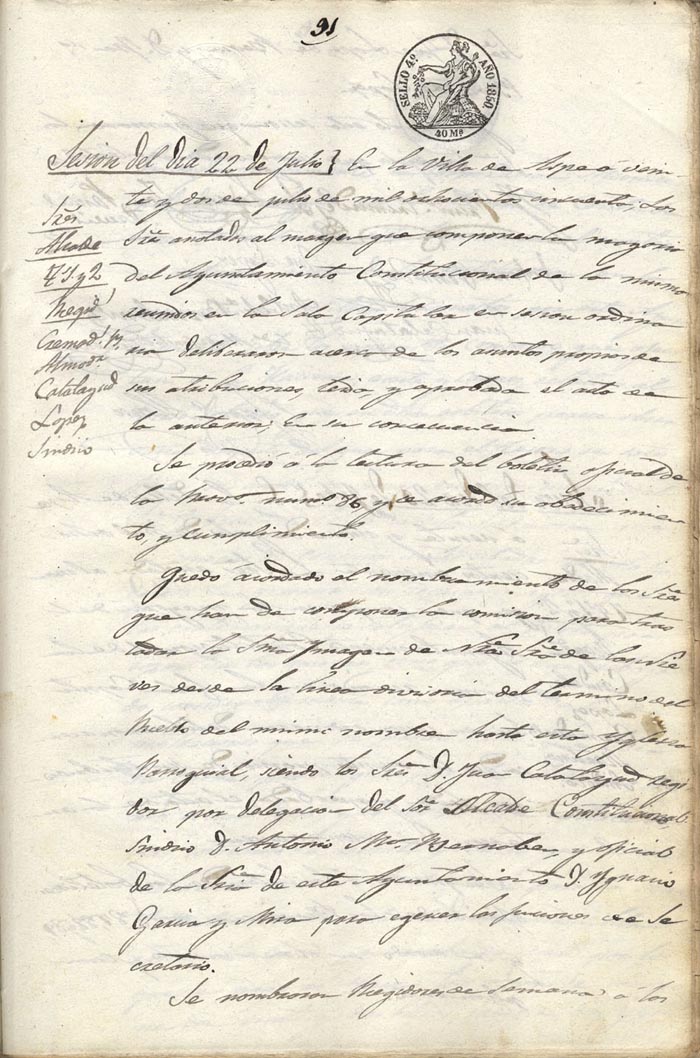 91
SELLO 4º AÑO 1850
40 Ms
Sesion del dia 22 de Julio} En la Villa de Aspe á vein-
te y dos de julio de mil ochocientos cincuenta; Los
Sres anotados al margen que componen la mayoria
del Ayuntamiento Constitucional de la misma
reunidos en la Sala Capitular en sesion ordina
ria deliberaron acerca de los asuntos propios de
sus atribuciones, leida y aprobada el acta de
la anterior; En su concecuencia.
Sres
Alcalde
T. 1º y 2
Regids
Cremads
Almodr
Calatayud
Lopez
Sindico
Se procedió á la lectura del boletin oficial de
la Prova numo 86, y se acordó su obedecimien
to, y cumplimiento.
Quedo acordado el nombramiento de los Sres
que han de componer la comision para tras
ladar la Sma Imagen de Ntra Sra de las Nie
ves desde la linea divisoria del termino del
Pueblo del mismo nombre hasta esta Yglesia
Parroquial, siendo los Sres D. Juan Calatayud regi
dor por delegacion del Sor Alcalde Constitucional,
Sindico D. Antonio Ma Bernabeu, y oficial
de la Sria de este Ayuntamiento D. Ygnacio
Garcia y Mira para egercer las funciones de Se
cretario.
Se nombraron Regidores de Semana á los